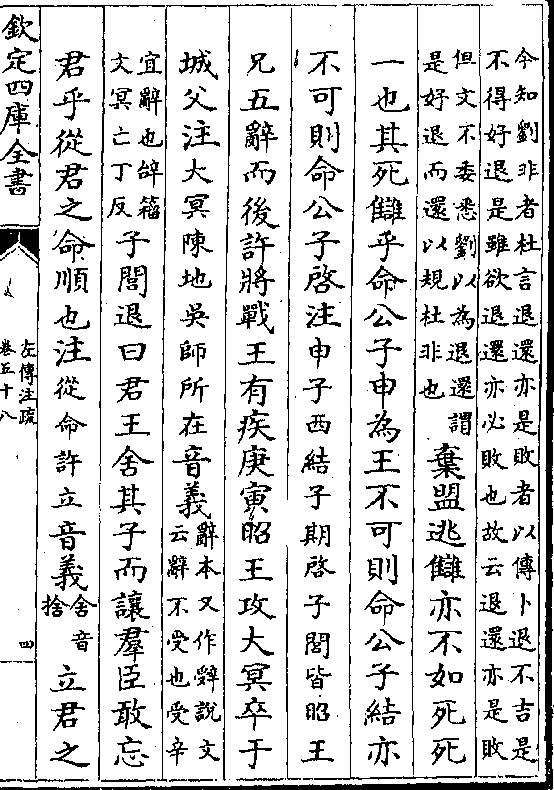 今知劉非者杜言退還亦是敗者以傳卜退不吉是
不得好退是雖欲退還亦必敗也故云退還亦是敗
但文不委悉劉以為退還謂
是好退而還以規杜非也
棄盟逃讎亦不如死死
一也其死讎乎命公子申為王不可則命公子結亦
不可則命公子啓注申子西結子期啓子閭皆昭王
兄五辭而後許將戰王有疾庚寅昭王攻大冥卒于
城父注大冥陳地吳師所在音義
辭本又作辤說文
云辭不受也受辛
宜辭也辝籀
文冥亡丁反
子閭退曰君王舍其子而讓羣臣敢忘
君乎從君之命順也注從命許立音義
舍音
捨
立君之
欽定四庫全書
左傳注疏
卷五十八
四